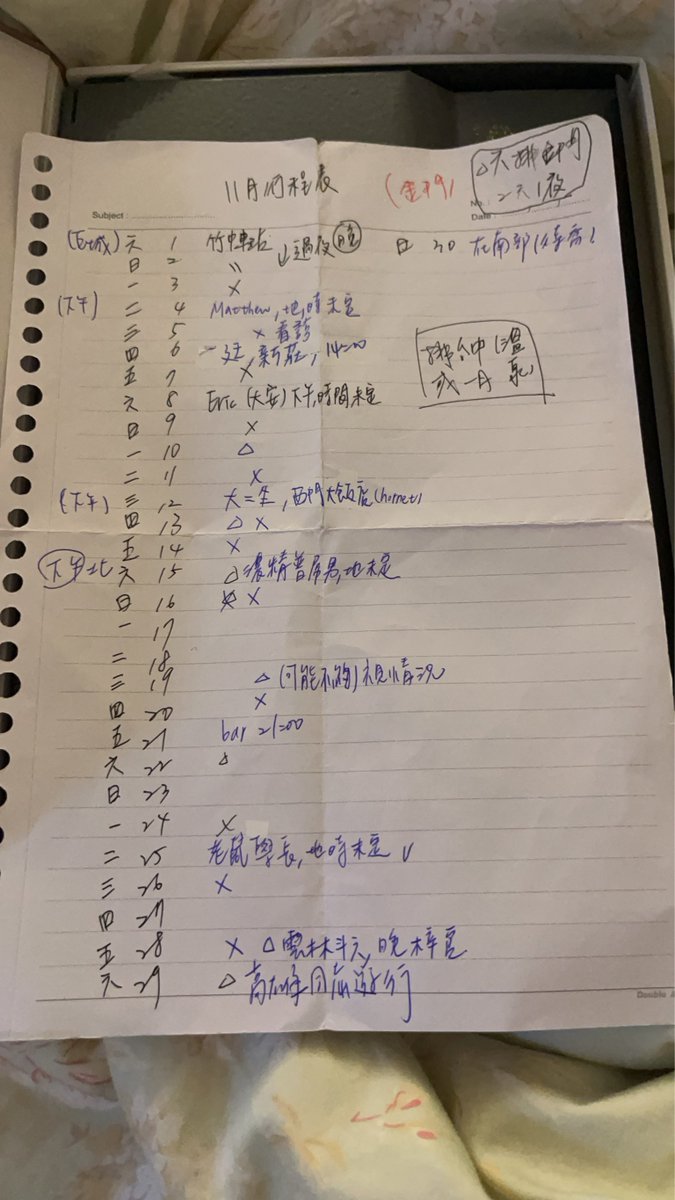 11月行程表
(金門)
2天1夜
No.
Date
Subject
六 1 竹中車站 ↓過夜
日 2 〃
一 3 X
(下午) 二 4 Matthew, 地,時未定
三 5 X 看診
四 6 新莊, 14=00
五 7 X
六 8 Eric (大安) 下午,時間未定
日 9 X
一 10 △
二 11 X
(下午) 三 12 西門大飯店 (hornet)
四 13 △ X
五 14 X
下午北 六 15 △ 地未定
日 16 X
一 17
二 18
三 19 △ (可能不夠) 視情況
四 20 X
五 21 bar 21=00
六 22 △
日 23
一 24 X
二 25 老鼠學長, 地時未定 V
三 26 X
四 27
五 28 X △ 雲林斗六, 晚梓官
六 29 △ 高雄同志遊行
日 30 在南部
或一月
Double A